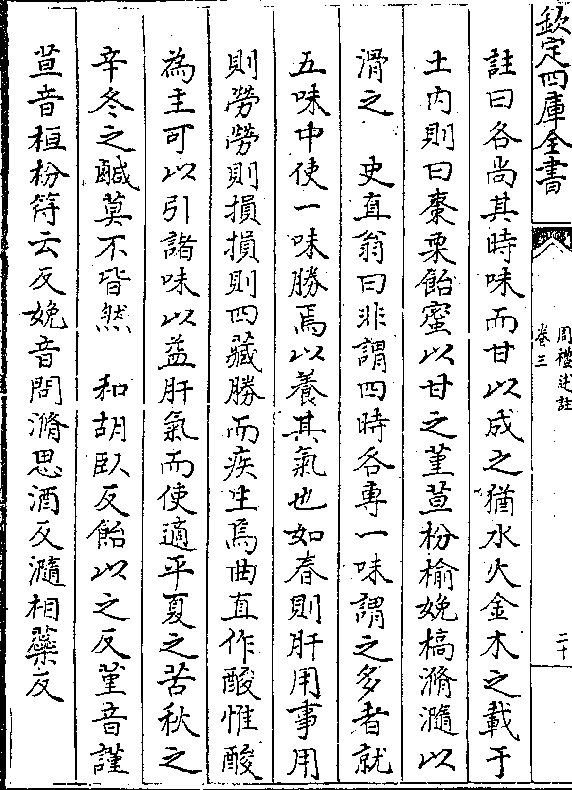 欽定四庫全書
周禮述註
卷三
二十
註曰各尚其時味而甘以成之猶水火金木之載于
土内則曰棗栗飴蜜以甘之堇荁枌榆娩槁滫瀡以
滑之　史直翁曰非謂四時各專一味謂之多者就
五味中使一味勝焉以養其氣也如春則肝用事用
則勞勞則損損則四藏勝而疾生焉曲直作酸惟酸
為主可以引諸味以益肝氣而使適平夏之苦秋之
辛冬之鹹莫不皆然　和胡臥反飴以之反堇音謹
荁音桓枌符云反娩音問滫思酒反瀡相蘂反